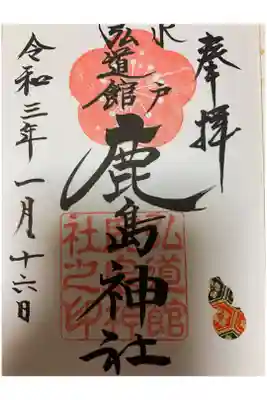 奉拝
水戸
弘道館
鹿島神社
弘道館
鹿島神
社之印
令和三年一月十六日